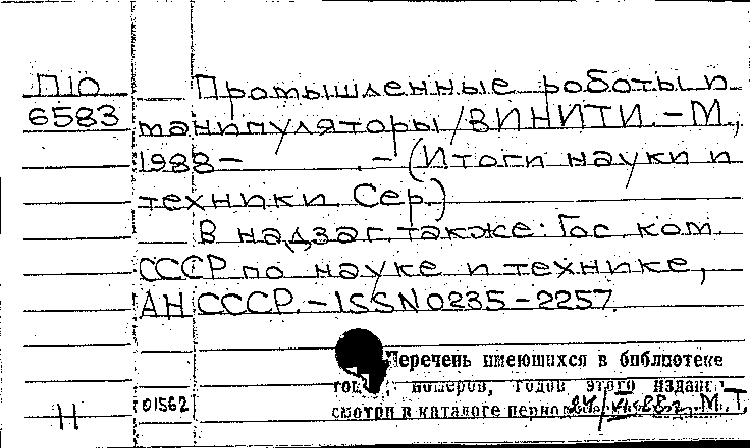 П10 Промышленные роботы и
6583 манипуляторы/ВИНИТИ.-М.,
1988-        .-(Итоги науки и
техники. Сер.)
В надзаг. также: Гос. ком.
СССР по науке и технике,
АН СССР.-ISSN 0235-2257.
Перечень имеющихся в библиотеке
номеров, годов этого издан
смотри в каталоге перио
Н 01562 М.Т.